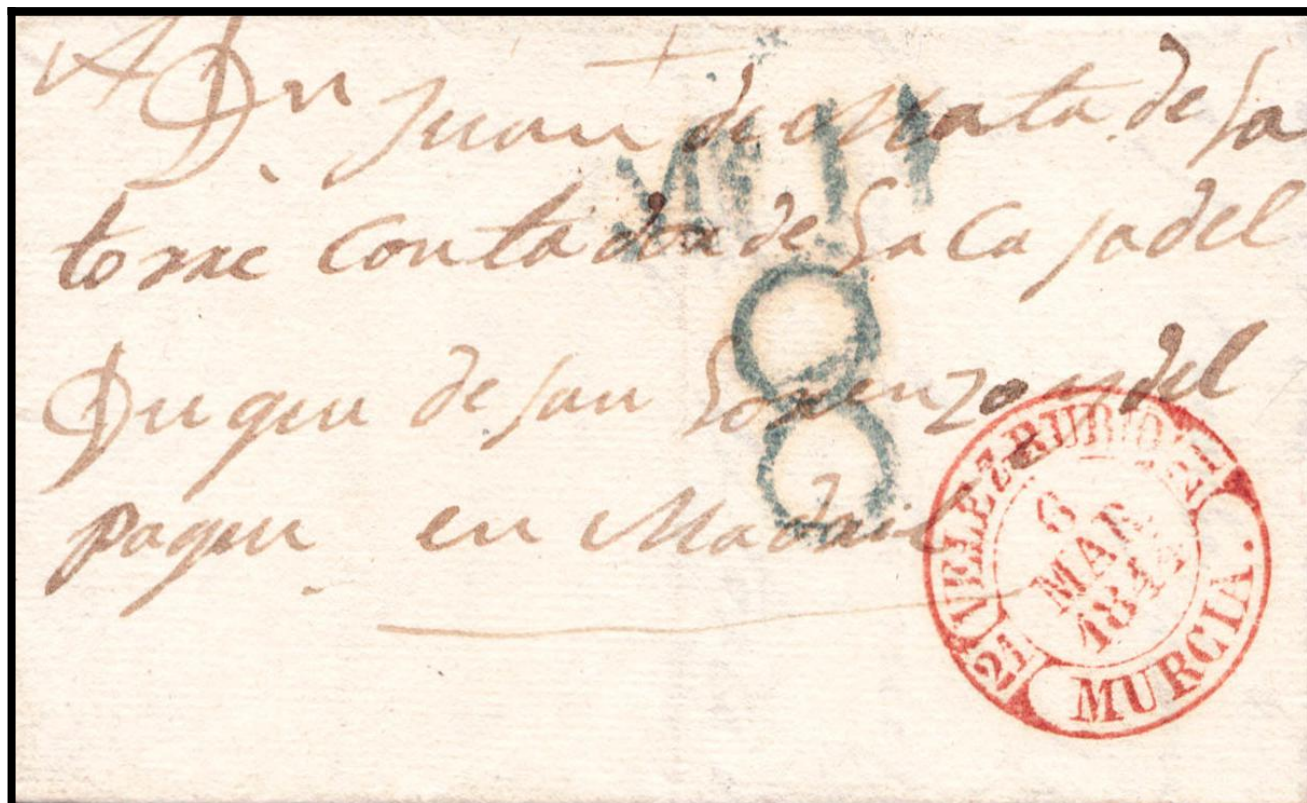 A Dn Juan de Mata de la
torre Contador de la Casa del
Duque de San Lorenzo y del
parque en Madrid
8
8
VELEZ-RUBIO
21 21
6
MAR
184
MURCIA.